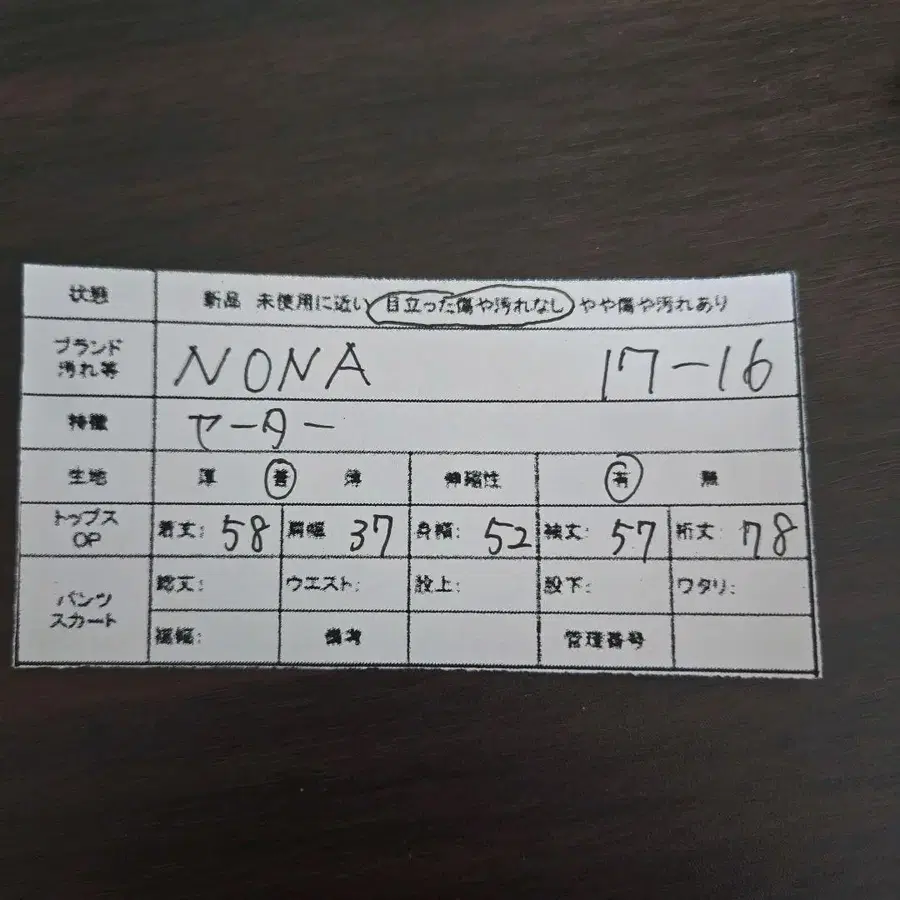 状態 新品 未使用に近い 目立った傷や汚れなし やや傷や汚れあり
ブランド 汚れ等 NONA 17-16
特徴 セーター
生地 厚 普 薄 伸縮性 有 無
トップス OP 着丈: 58 肩幅 37 身幅: 52 袖丈: 57 裄丈 78
パンツ スカート 総丈: ウエスト: 股上: 股下: ワタリ:
裾幅: 備考 管理番号